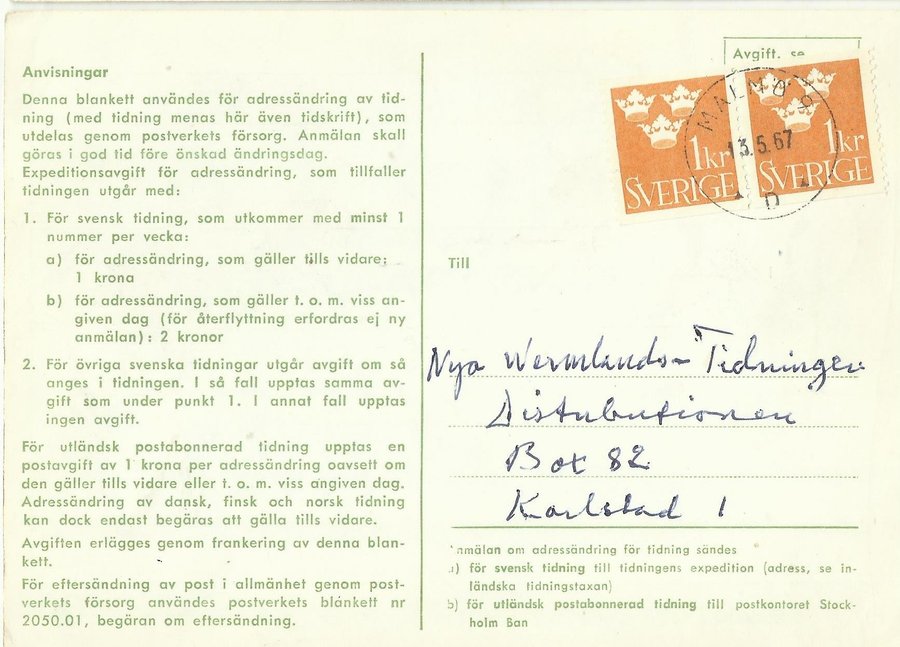 Anvisningar
Denna blankett användes för adressändring av tid-
ning (med tidning menas här även tidskrift), som
utdelas genom postverkets försorg. Anmälan skall
göras i god tid före önskad ändringsdag.
Expeditionsavgift för adressändring, som tillfaller
tidningen utgår med:
1. För svensk tidning, som utkommer med minst 1
nummer per vecka:
a) för adressändring, som gäller tills vidare:
1 krona
b) för adressändring, som gäller t. o. m. viss an-
given dag (för återflyttning erfordras ej ny
anmälan): 2 kronor
2. För övriga svenska tidningar utgår avgift om så
anges i tidningen. I så fall upptas samma av-
gift som under punkt 1. I annat fall upptas
ingen avgift.
För utländsk postabonnerad tidning upptas en
postavgift av 1 krona per adressändring oavsett om
den gäller tills vidare eller t. o. m. viss angiven dag.
Adressändring av dansk, finsk och norsk tidning
kan dock endast begäras att gälla tills vidare.
Avgiften erlägges genom frankering av denna blan-
kett.
För eftersändning av post i allmänhet genom post-
verkets försorg användes postverkets blankett nr
2050.01, begäran om eftersändning.
Avgift. se
1kr
SVERIGE
1kr
SVERIGE
MALMÖ 9
13.5.67
D
Till
Nya Wermlands-Tidningen
Distributionen
Box 82
Karlstad 1
nmälan om adressändring för tidning sändes
a) för svensk tidning till tidningens expedition (adress, se in-
ländska tidningstaxan)
b) för utländsk postabonnerad tidning till postkontoret Stock-
holm Ban